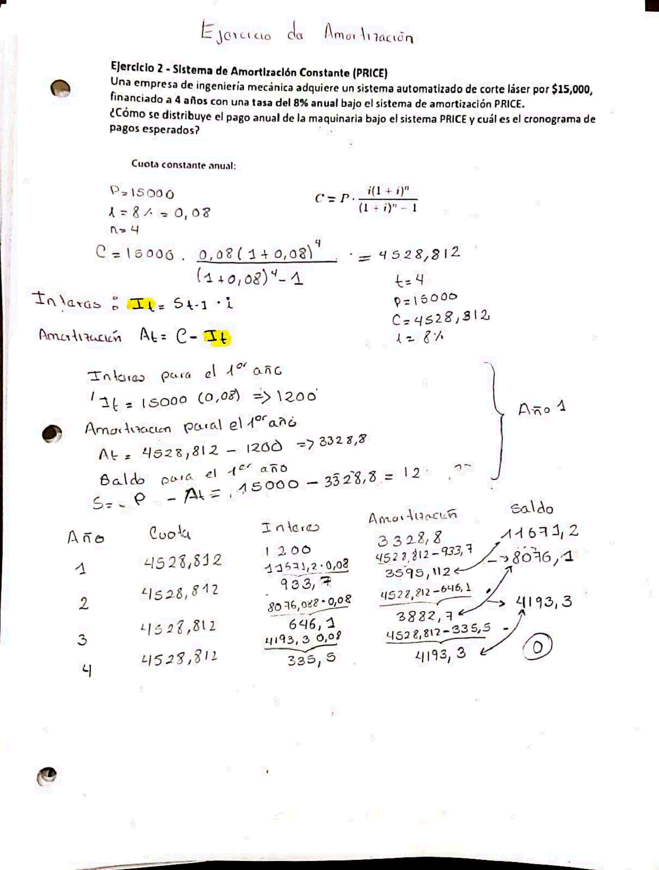 Ejercicio de Amortización
Ejercicio 2 - Sistema de Amortización Constante (PRICE)
Una empresa de ingeniería mecánica adquiere un sistema automatizado de corte láser por $15,000,
financiado a 4 años con una tasa del 8% anual bajo el sistema de amortización PRICE.
¿Cómo se distribuye el pago anual de la maquinaria bajo el sistema PRICE y cuál es el cronograma de
pagos esperados?
Cuota constante anual:
P=15000
i = 8% = 0,08
n=4
C = P · i(1 + i)ⁿ / (1 + i)ⁿ − 1
C = 15000 . 0,08(1+0,08)⁴ / (1+0,08)⁴-1 = 4528,812
t=4
P=15000
C=4528,812
i = 8%
Interes : It = St-1 · i
Amortización At = C - It
Interes para el 1er año
It = 15000 (0,08) => 1200
Amortización para el 1er año
At = 4528,812 - 1200 => 3328,8
Saldo para el 1er año
S= P - At = 15000 - 3328,8 = 12
Año 1
Año Cuota Interes Amortización Saldo
1 4528,812 1200 3328,8 11671,2
11671,2·0,08 4528,812-933,7
2 4528,812 933,7 3595,112 8076,1
8076,088·0,08 4528,812-646,1
3 4528,812 646,1 3882,7 4193,3
4193,3 0,08 4528,812-335,5
4 4528,812 335,5 4193,3 0